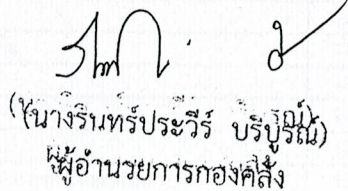 (นางรินทร์ประวีร์ บริบูรณ์)
ผู้อำนวยการกองคลัง